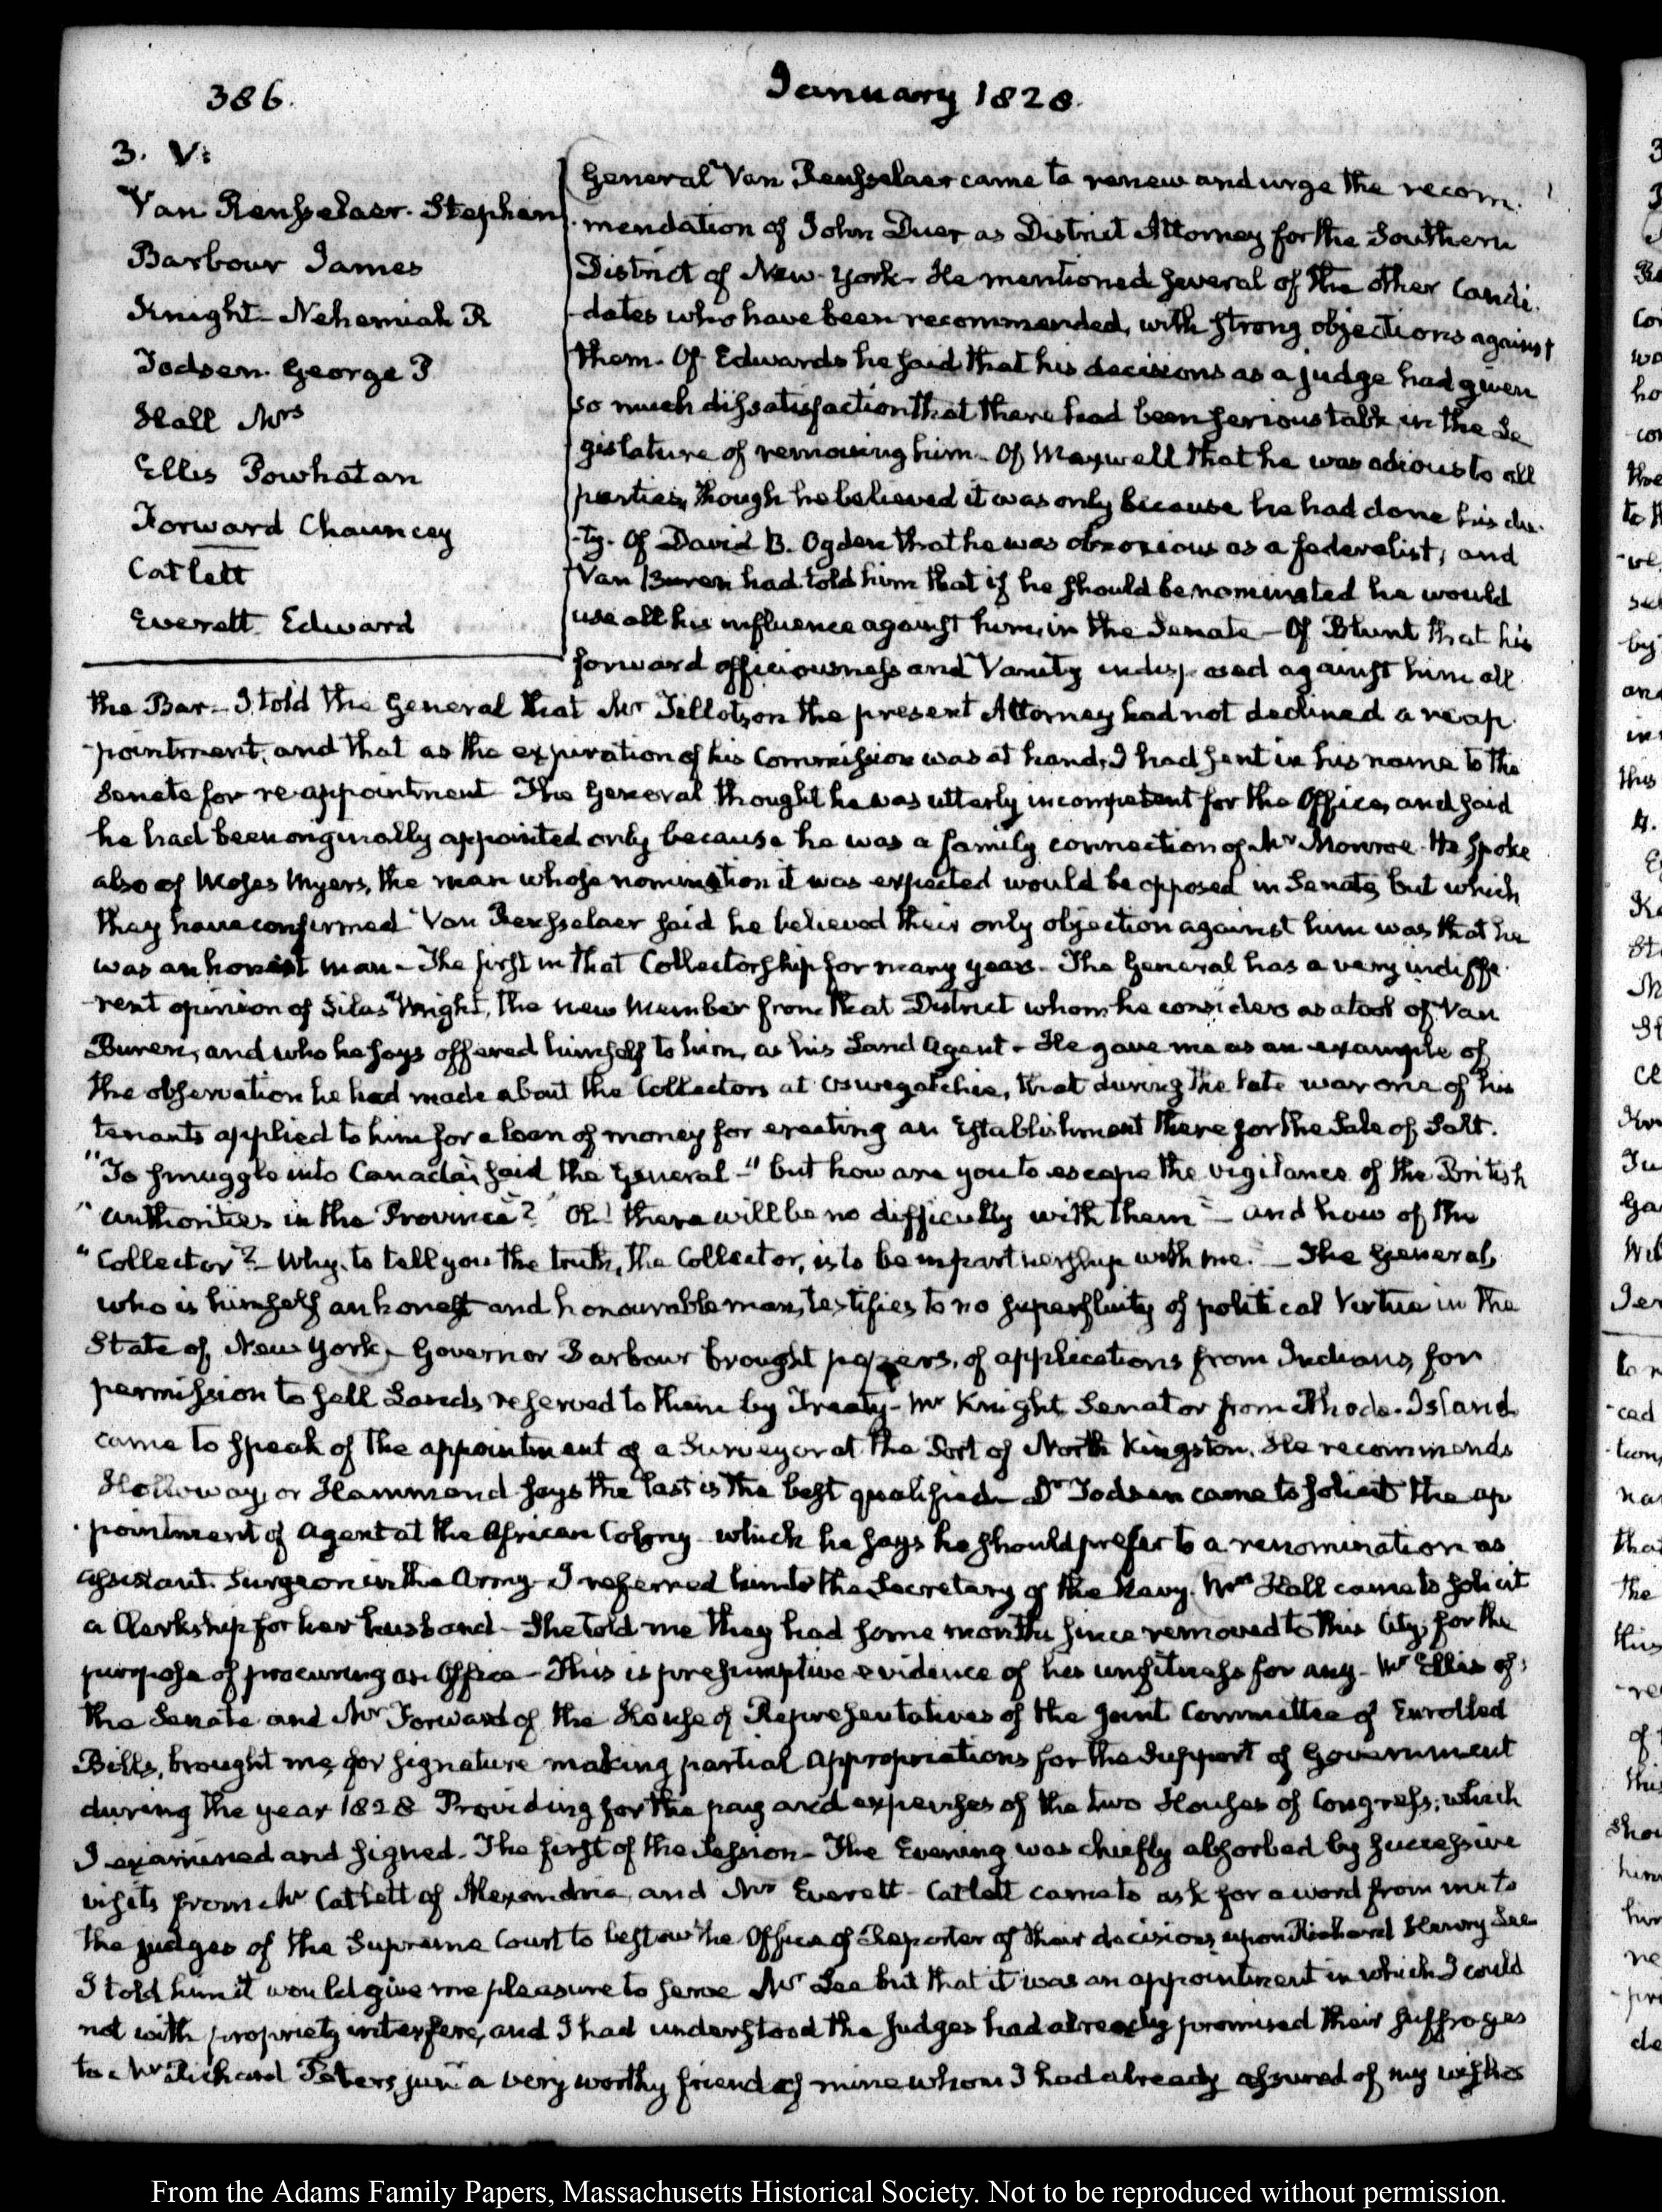 386.
January 1828.
3. V:
Van Rensselaer. Stephen
Barbour James
Knight Nehemiah R
Todsen George P
Hall Mrs
Ellis Powhatan
Forward Chauncey
Catlett
Everett Edward
General Van Rensselaer came to renew and urge the recom-
mendation of John Duer as District Attorney for the Southern
District of New-York- He mentioned several of the other Candi-
-dates who have been recommended, with strong objections against
them- Of Edwards he said that his decisions as a judge had given
so much dissatisfaction that there had been serious talk in the Le
gislature of removing him- Of Maxwell that he was odious to all
parties, though he believed it was only because he had done his du-
-ty. Of David B. Ogden that he was obnoxious as a federalist, and
Van Buren had told him that if he should be nominated he would
use all his influence against him, in the Senate- Of Blunt that his
forward officiousness and Vanity indisposed against him all
the Bar- I told the General that Mr Tillotson the present Attorney had not declined a reap
-pointment, and that as the expiration of his Commission was at hand, I had sent in his name to the
Senate for re-appointment The General thought he was utterly incompetent for the Office, and said
he had been originally appointed only because he was a family connection of Mr Monroe- He spoke
also of Moses Myers, the man whose nomination it was expected would be opposed in Senate, but which
they have confirmed Van Rensselaer said he believed their only objection against him was that he
was an honest man- The first in that Collectorship for many years- The General has a very indiffe-
-rent opinion of Silas Wright, the new Member from that District whom he considers as a tool of Van
Buren, and who he says offered himself to him, as his Land Agent- He gave me as an example of
the observation he had made about the Collectors at Oswegatchie, that during the late war one of his
tenants applied to him for a loan of money for erecting an Establishment there for the Sale of Salt.
"To smuggle into Canada, said the General-" but how are you to escape the vigilance of the British
"authorities in the Province? "Oh! there will be no difficulty with them"- and how of the
"Collector"?- Why, to tell you the truth, the Collector, is to be in partnership with me."- The General,
who is himself an honest and honourable man, testifies to no superfluity of political Virtue in the
State of New York- Governor Barbour brought papers, of applications from Indians, for
permission to sell Lands reserved to them by Treaty- Mr Knight Senator from Rhode-Island
came to speak of the appointment of a Surveyor at the Port of North Kingston. He recommends
Holloway, or Hammond says the last is the best qualified- Dr Todsen came to solicit the ap
-pointment of Agent at the African Colony- which he says he should prefer to a renomination as
assistant Surgeon in the Army- I referred him to the Secretary of the Navy. Mrs Hall came to solicit
a Clerkship for her husband- She told me they had some months since removed to this City, for the
purpose of procuring an Office- This is presumptive evidence of his unfitness for any- Mr Ellis of
the Senate and Mr Forward of the House of Representatives of the joint Committee of Enrolled
Bills, brought me, for signature making partial appropriations for the Support of Government
during the year 1828 Providing for the pay and expenses of the two Houses of Congress; which
I examined and signed- The first of the Session- The Evening was chiefly absorbed by successive
visits from Mr Catlett of Alexandria, and Mr Everett- Catlett came to ask for a word from me to
the judges of the Supreme Court to bestow the Office of Reporter of their decisions upon Richard Henry Lee
I told him it would give me pleasure to serve Mr Lee but that it was an appointment in which I could
not with propriety interfere, and I had understood the Judges had already promised their suffrages
to Mr Richard Peters junr a very worthy friend of mine whom I had already assured of my wishes
From the Adams Family Papers, Massachusetts Historical Society. Not to be reproduced without permission.